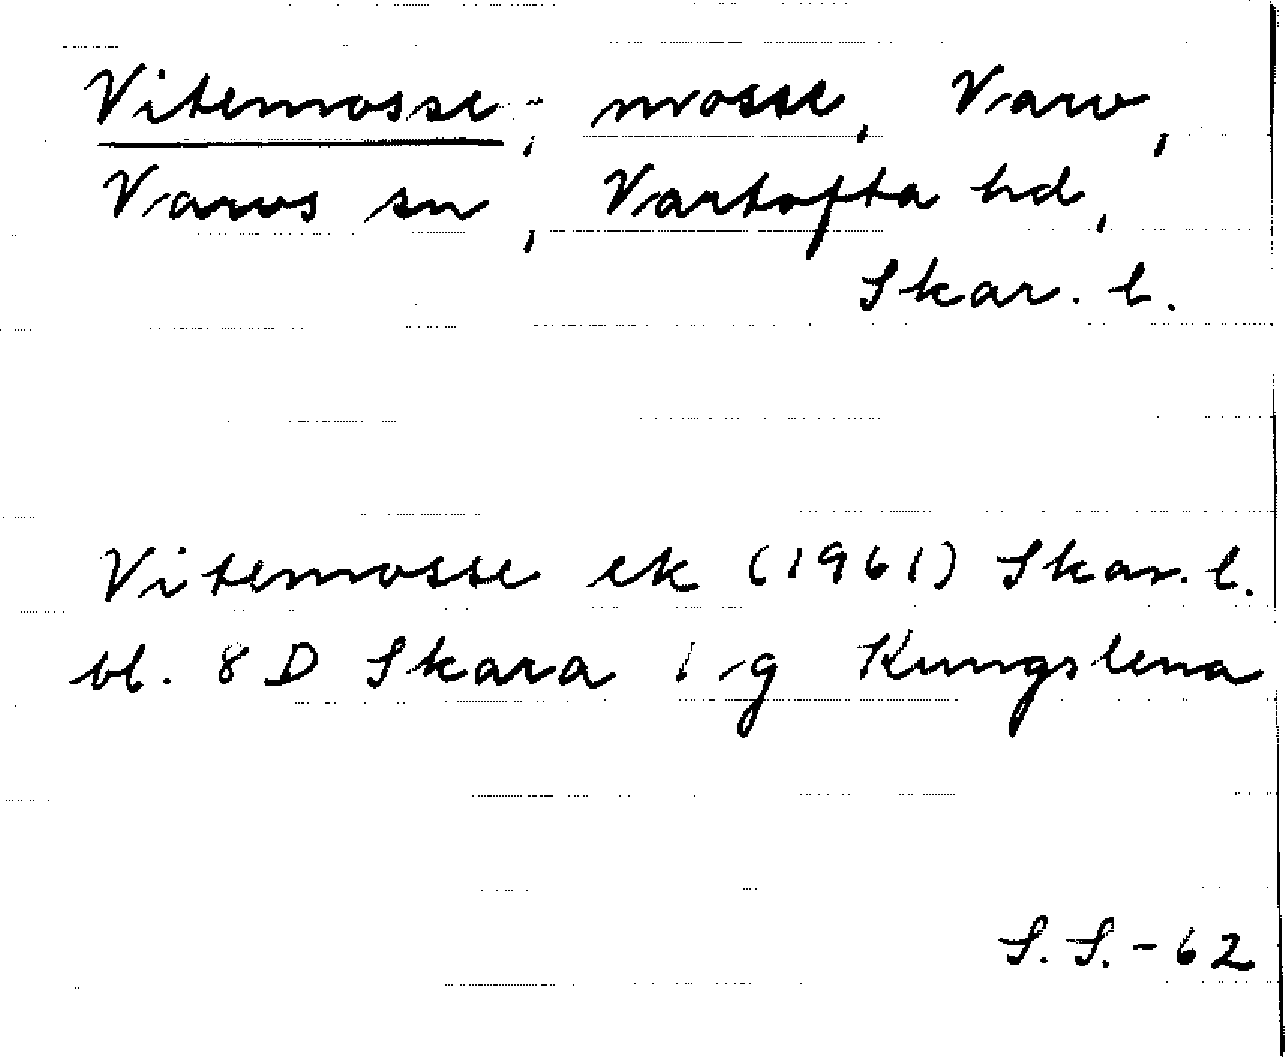 Vitemosse, mosse, Varv,
Varvs sn, Vartofta hd,
Skar. l.
Vitemosse ek (1961) Skar. l.
bl. 8 D Skara 1 g Kungslena
S. S. - 62